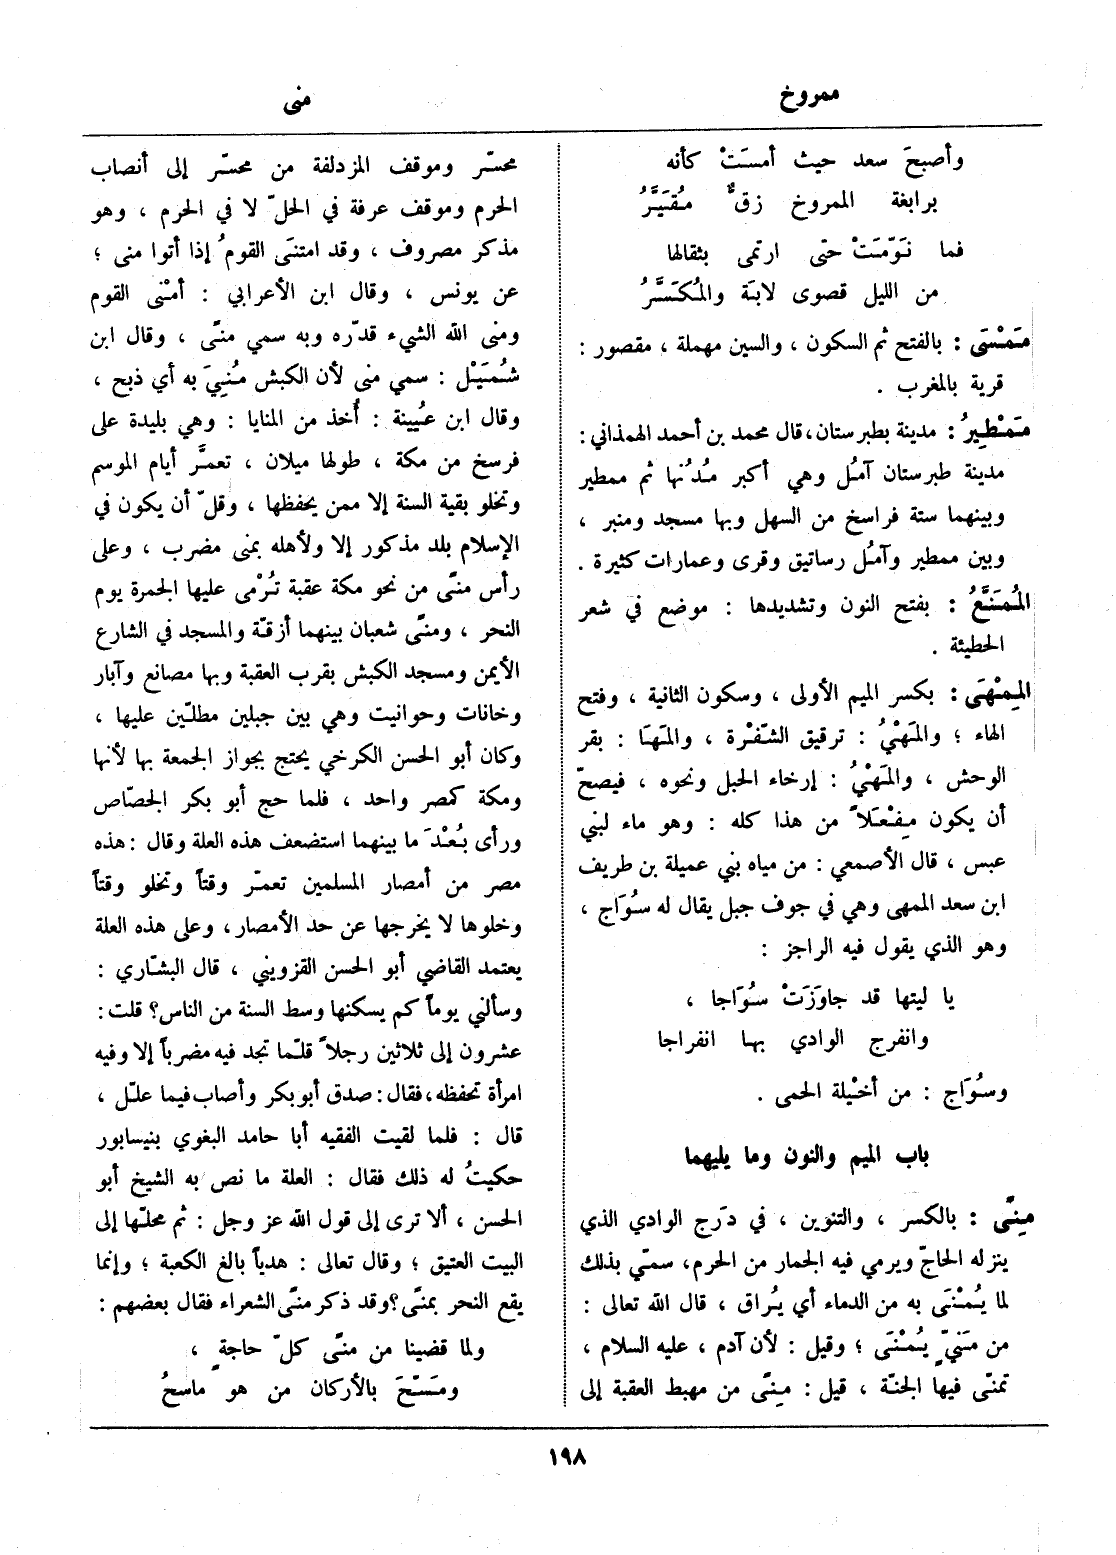 ممروخ
منى
وأصبحَ سعد حيث أمسَتْ كأنه
برابغة الممروخ زقٌّ مُقَيَّرُ
فما نَوَّمَتْ حتى ارتمى بثقالها
من الليل قصوى لابَة والمُكَسَّرُ
مَمْسَى : بالفتح ثم السكون ، والسين مهملة ، مقصور :
قرية بالمغرب .
مَمْطِيرُ : مدينة بطبرستان، قال محمد بن أحمد الهمذاني :
مدينة طبرستان آمُل وهي أكبر مُدُنها ثم ممطير
وبينهما ستة فراسخ من السهل وبها مسجد ومنبر ،
وبين ممطير وآمُل رساتيق وقرى وعمارات كثيرة .
المُمَنَّعُ : بفتح النون وتشديدها : موضع في شعر
الحطيئة .
المِمْهَى : بكسر الميم الأولى ، وسكون الثانية ، وفتح
الهاء ؛ والمَهْيُ : ترقيق الشَّفْرة ، والمَهَا : بقر
الوحش ، والمَهْيُ : إرخاء الحبل ونحوه ، فيصحّ
أن يكون مِفْعَلاً من هذا كله : وهو ماء لبني
عبس ، قال الأصمعي : من مياه بني عميلة بن طريف
ابن سعد الممهى وهي في جوف جبل يقال له سُوَاج ،
وهو الذي يقول فيه الراجز :
يا ليتها قد جاوَزَتْ سُوَاجا ،
وانفرج الوادي بها انفراجا
وسُوَاج : من أخْيلة الحمى .
باب الميم والنون وما يليهما
مِنىً : بالكسر ، والتنوين ، في دَرَج الوادي الذي
ينزله الحاجّ ويرمي فيه الجمار من الحرم، سمّي بذلك
لما يُمْنَى به من الدماء أي يُراق ، قال الله تعالى :
من مَنيٍّ يُمْنَى ؛ وقيل : لأن آدم ، عليه السلام ،
تمنّى فيها الجنّة ، قيل : مِنىً من مهبط العقبة إلى
محسّر وموقف المزدلفة من محسّر إلى أنصاب
الحرم وموقف عرفة في الحلّ لا في الحرم ، وهو
مذكر مصروف ، وقد امتنَى القومُ إذا أتوا منى ؛
عن يونس ، وقال ابن الأعرابي : أمْنى القوم
ومنى الله الشيء قدّره وبه سمي منىً ، وقال ابن
شُمَيْل : سمي منى لأن الكبش مُنِيَ به أي ذبح ،
وقال ابن عُيينة : أُخذ من المنايا : وهي بليدة على
فرسخ من مكة ، طولها ميلان ، تعمَّر أيام الموسم
وتخلو بقية السنة إلا ممن يحفظها ، وقلّ أن يكون في
الإسلام بلد مذكور إلا ولأهله بمنى مضرب ، وعلى
رأس منىً من نحو مكة عقبة تُرْمى عليها الجمرة يوم
النحر ، ومنىً شعبان بينهما أزقّة والمسجد في الشارع
الأيمن ومسجد الكبش بقرب العقبة وبها مصانع وآبار
وخانات وحوانيت وهي بين جبلين مطلّين عليها ،
وكان أبو الحسن الكرخي يحتج بجواز الجمعة بها لأنها
ومكة كمصر واحد ، فلما حج أبو بكر الجصّاص
ورأى بُعْدَ ما بينهما استضعف هذه العلة وقال : هذه
مصر من أمصار المسلمين تعمّر وقتاً وتخلو وقتاً
وخلوها لا يخرجها عن حد الأمصار، وعلى هذه العلة
يعتمد القاضي أبو الحسن القزويني ، قال البشّاري :
وسألني يوماً كم يسكنها وسط السنة من الناس؟ قلت :
عشرون إلى ثلاثين رجلاً قلّما تجد فيه مضرباً إلا وفيه
امرأة تحفظه، فقال : صدق أبو بكر وأصاب فيما علّل ،
قال : فلما لقيت الفقيه أبا حامد البغوي بنيسابور
حكيتُ له ذلك فقال : العلة ما نص به الشيخ أبو
الحسن ، ألا ترى إلى قول الله عز وجل : ثم محلّها إلى
البيت العتيق ؛ وقال تعالى : هدياً بالغ الكعبة ؛ وإنما
يقع النحر بمنىً؟ وقد ذكر منىً الشعراء فقال بعضهم :
ولما قضينا من منىً كلّ حاجةٍ ،
ومَسّحَ بالأركان من هو ماسحُ
١٩٨